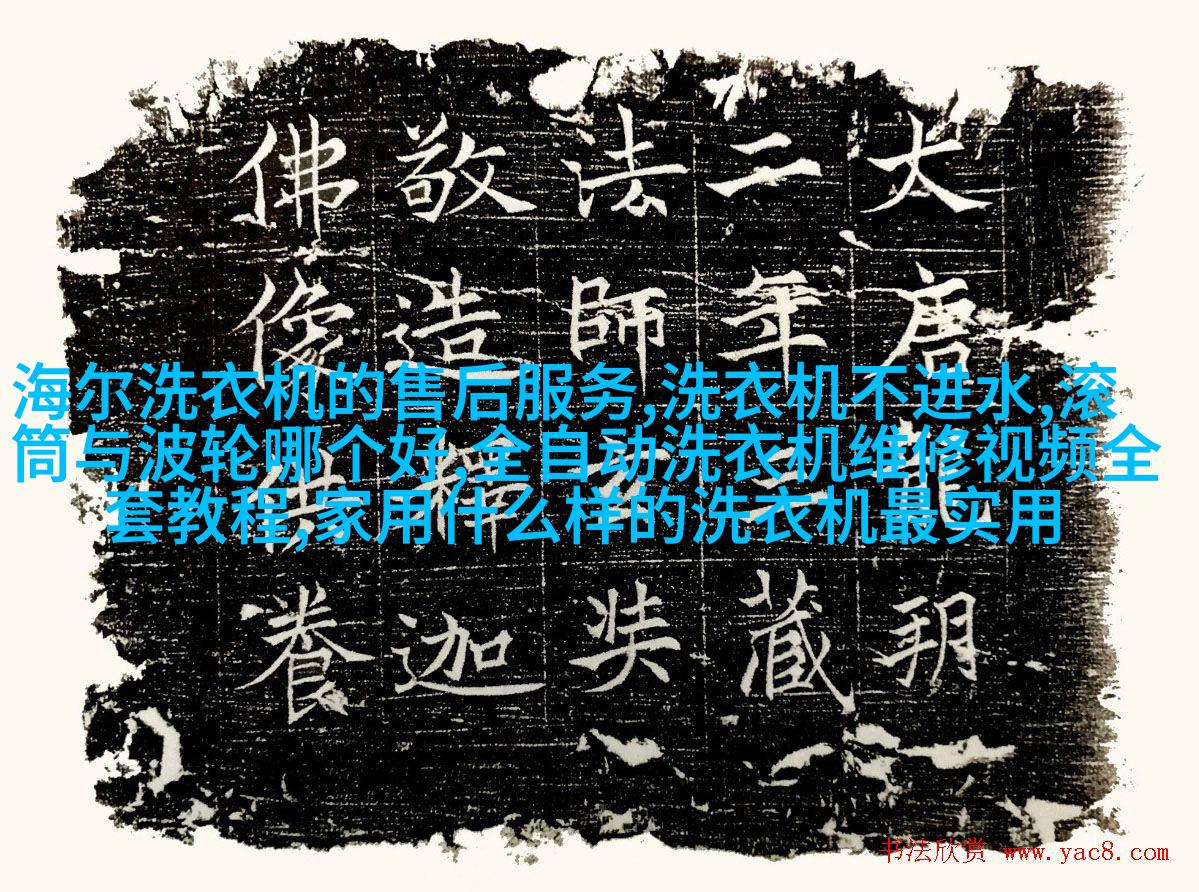 大唐龍朔
二年三藏
法師玄奘
敬造釋迦
佛像供養
海尔洗衣机的售后服务,洗衣机不进水,滚
筒与波轮哪个好,全自动洗衣机维修视频全
套教程,家用什么样的洗衣机最实用
书法欣赏 www.yac8.com